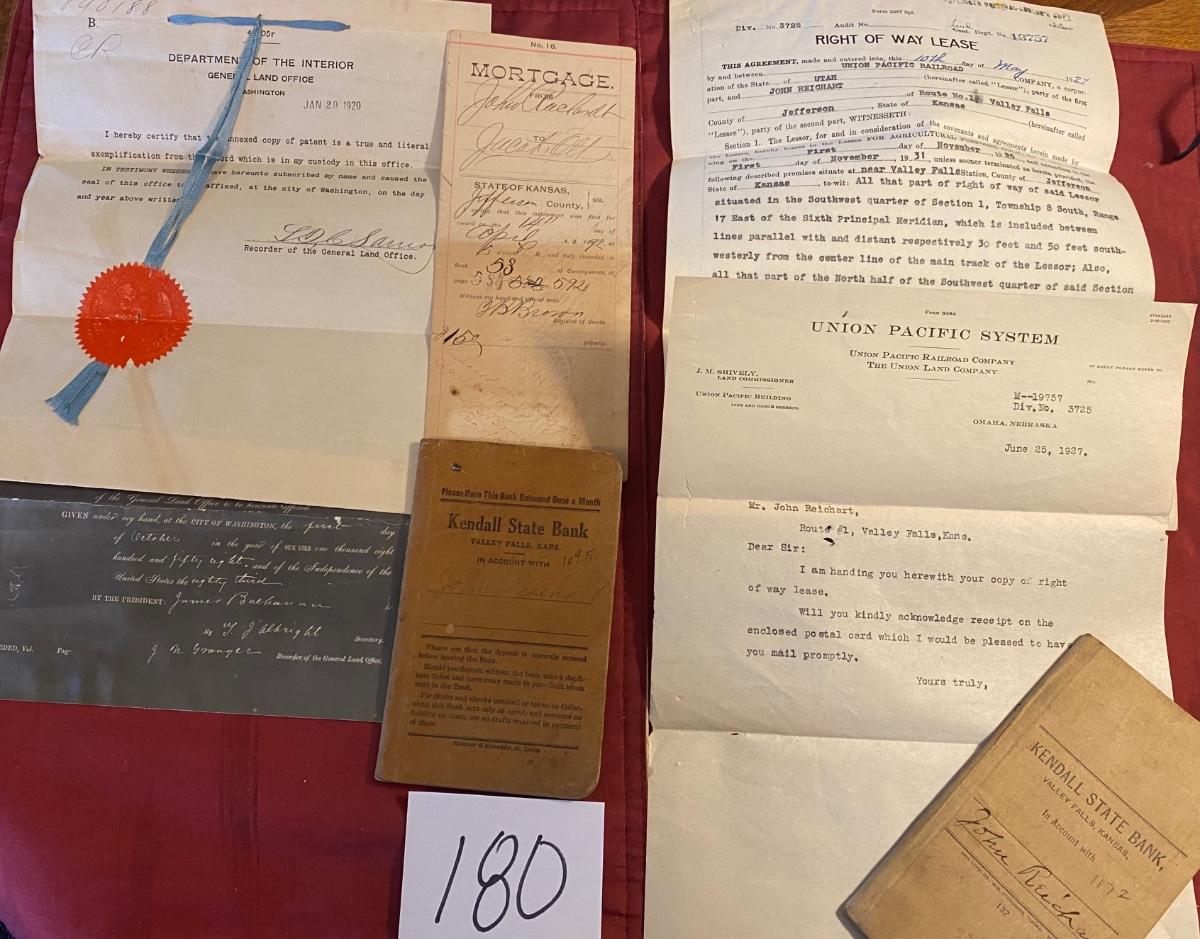 890188
B.
4-205r
CR
DEPARTMENT OF THE INTERIOR
GENERAL LAND OFFICE
WASHINGTON
JAN 29 1920
I hereby certify that the annexed copy of patent is a true and literal
exemplification from the record which is in my custody in this office.
IN TESTIMONY WHEREOF I have hereunto subscribed my name and caused the
seal of this office to be affixed, at the city of Washington, on the day
and year above written
Recorder of the General Land Office.
of the General Land Office to be hereunto affixed.
GIVEN under my hand, at the CITY OF WASHINGTON, the first day
of October in the year of OUR LORD one thousand eight
hundred and fifty eight, and of the Independence of the
United States the eighty third
BY THE PRESIDENT: James Buchanan
By T. J. Albright Secretary.
RDED, Vol. Page J. N. Granger Recorder of the General Land Office.
No. 16.
MORTGAGE.
FROM
John Reichart
TO
Jacob
STATE OF KANSAS,
Jefferson County, } ss.
that this instrument was filed for
record on the 14 day of
April A. D. 1892, at
M., and duly recorded in
Book 58 of Conveyances, at
page 592
Witness my hand and official seal.
Brown
Register of Deeds.
Deputy.
$1.50
Please Have This Book Balanced Once a Month
Kendall State Bank
VALLEY FALLS, KANS.
IN ACCOUNT WITH 1095
John Reichart
Please see that the deposit is correctly entered
before leaving the Bank.
Should you deposit without the book, take a dupli-
cate ticket and have entry made in your Book when
next in the Bank.
For drafts and checks credited or taken as Collec-
tions, this Bank acts only as agent; and assumes no
liability on them, nor on drafts received in payment
of them.
180
Form 2357 Spl.
DUPLICATE ORIGINAL-LESSEE'S COPY
Div. No. 3725 Audit No. Land Cont. Dept. No. 19757
RIGHT OF WAY LEASE
THIS AGREEMENT, made and entered into, this 10th day of May 1927
by and between UNION PACIFIC RAILROAD COMPANY, a corpor-
ation of the State of UTAH (hereinafter called "Lessor"), party of the first
part, and JOHN REICHART of Route No. 1, Valley Falls
County of Jefferson, State of Kansas (hereinafter called
"Lessee"), party of the second part, WITNESSETH:
Section 1. The Lessor, for and in consideration of the covenants and agreements herein made by
the Lessee, hereby leases to the Lessee FOR AGRICULTURAL
First day of November
First day of November, 1931, unless sooner terminated as herein provided, the
following described premises situate at near Valley Falls Station, County of Jefferson
State of Kansas, to-wit: All that part of right of way of said Lessor
situated in the Southwest quarter of Section 1, Township 8 South, Range
17 East of the Sixth Principal Meridian, which is included between
lines parallel with and distant respectively 30 feet and 50 feet south-
westerly from the center line of the main track of the Lessor; Also,
all that part of the North half of the Southwest quarter of said Section
Form 5184
STANDARD
UNION PACIFIC SYSTEM
UNION PACIFIC RAILROAD COMPANY
THE UNION LAND COMPANY
J. M. SHIVELY,
LAND COMMISSIONER
UNION PACIFIC BUILDING
15TH AND DODGE STREETS.
IN REPLY PLEASE REFER TO
No.
M--19757
Div.No. 3725
OMAHA, NEBRASKA
June 25, 1927.
Mr. John Reichart,
Route #1, Valley Falls,Kans.
Dear Sir:
I am handing you herewith your copy of right
of way lease.
Will you kindly acknowledge receipt on the
enclosed postal card which I would be pleased to have
you mail promptly.
Yours truly,
KENDALL STATE BANK,
VALLEY FALLS, KANSAS,
In Account with
1172
John Reicha
132